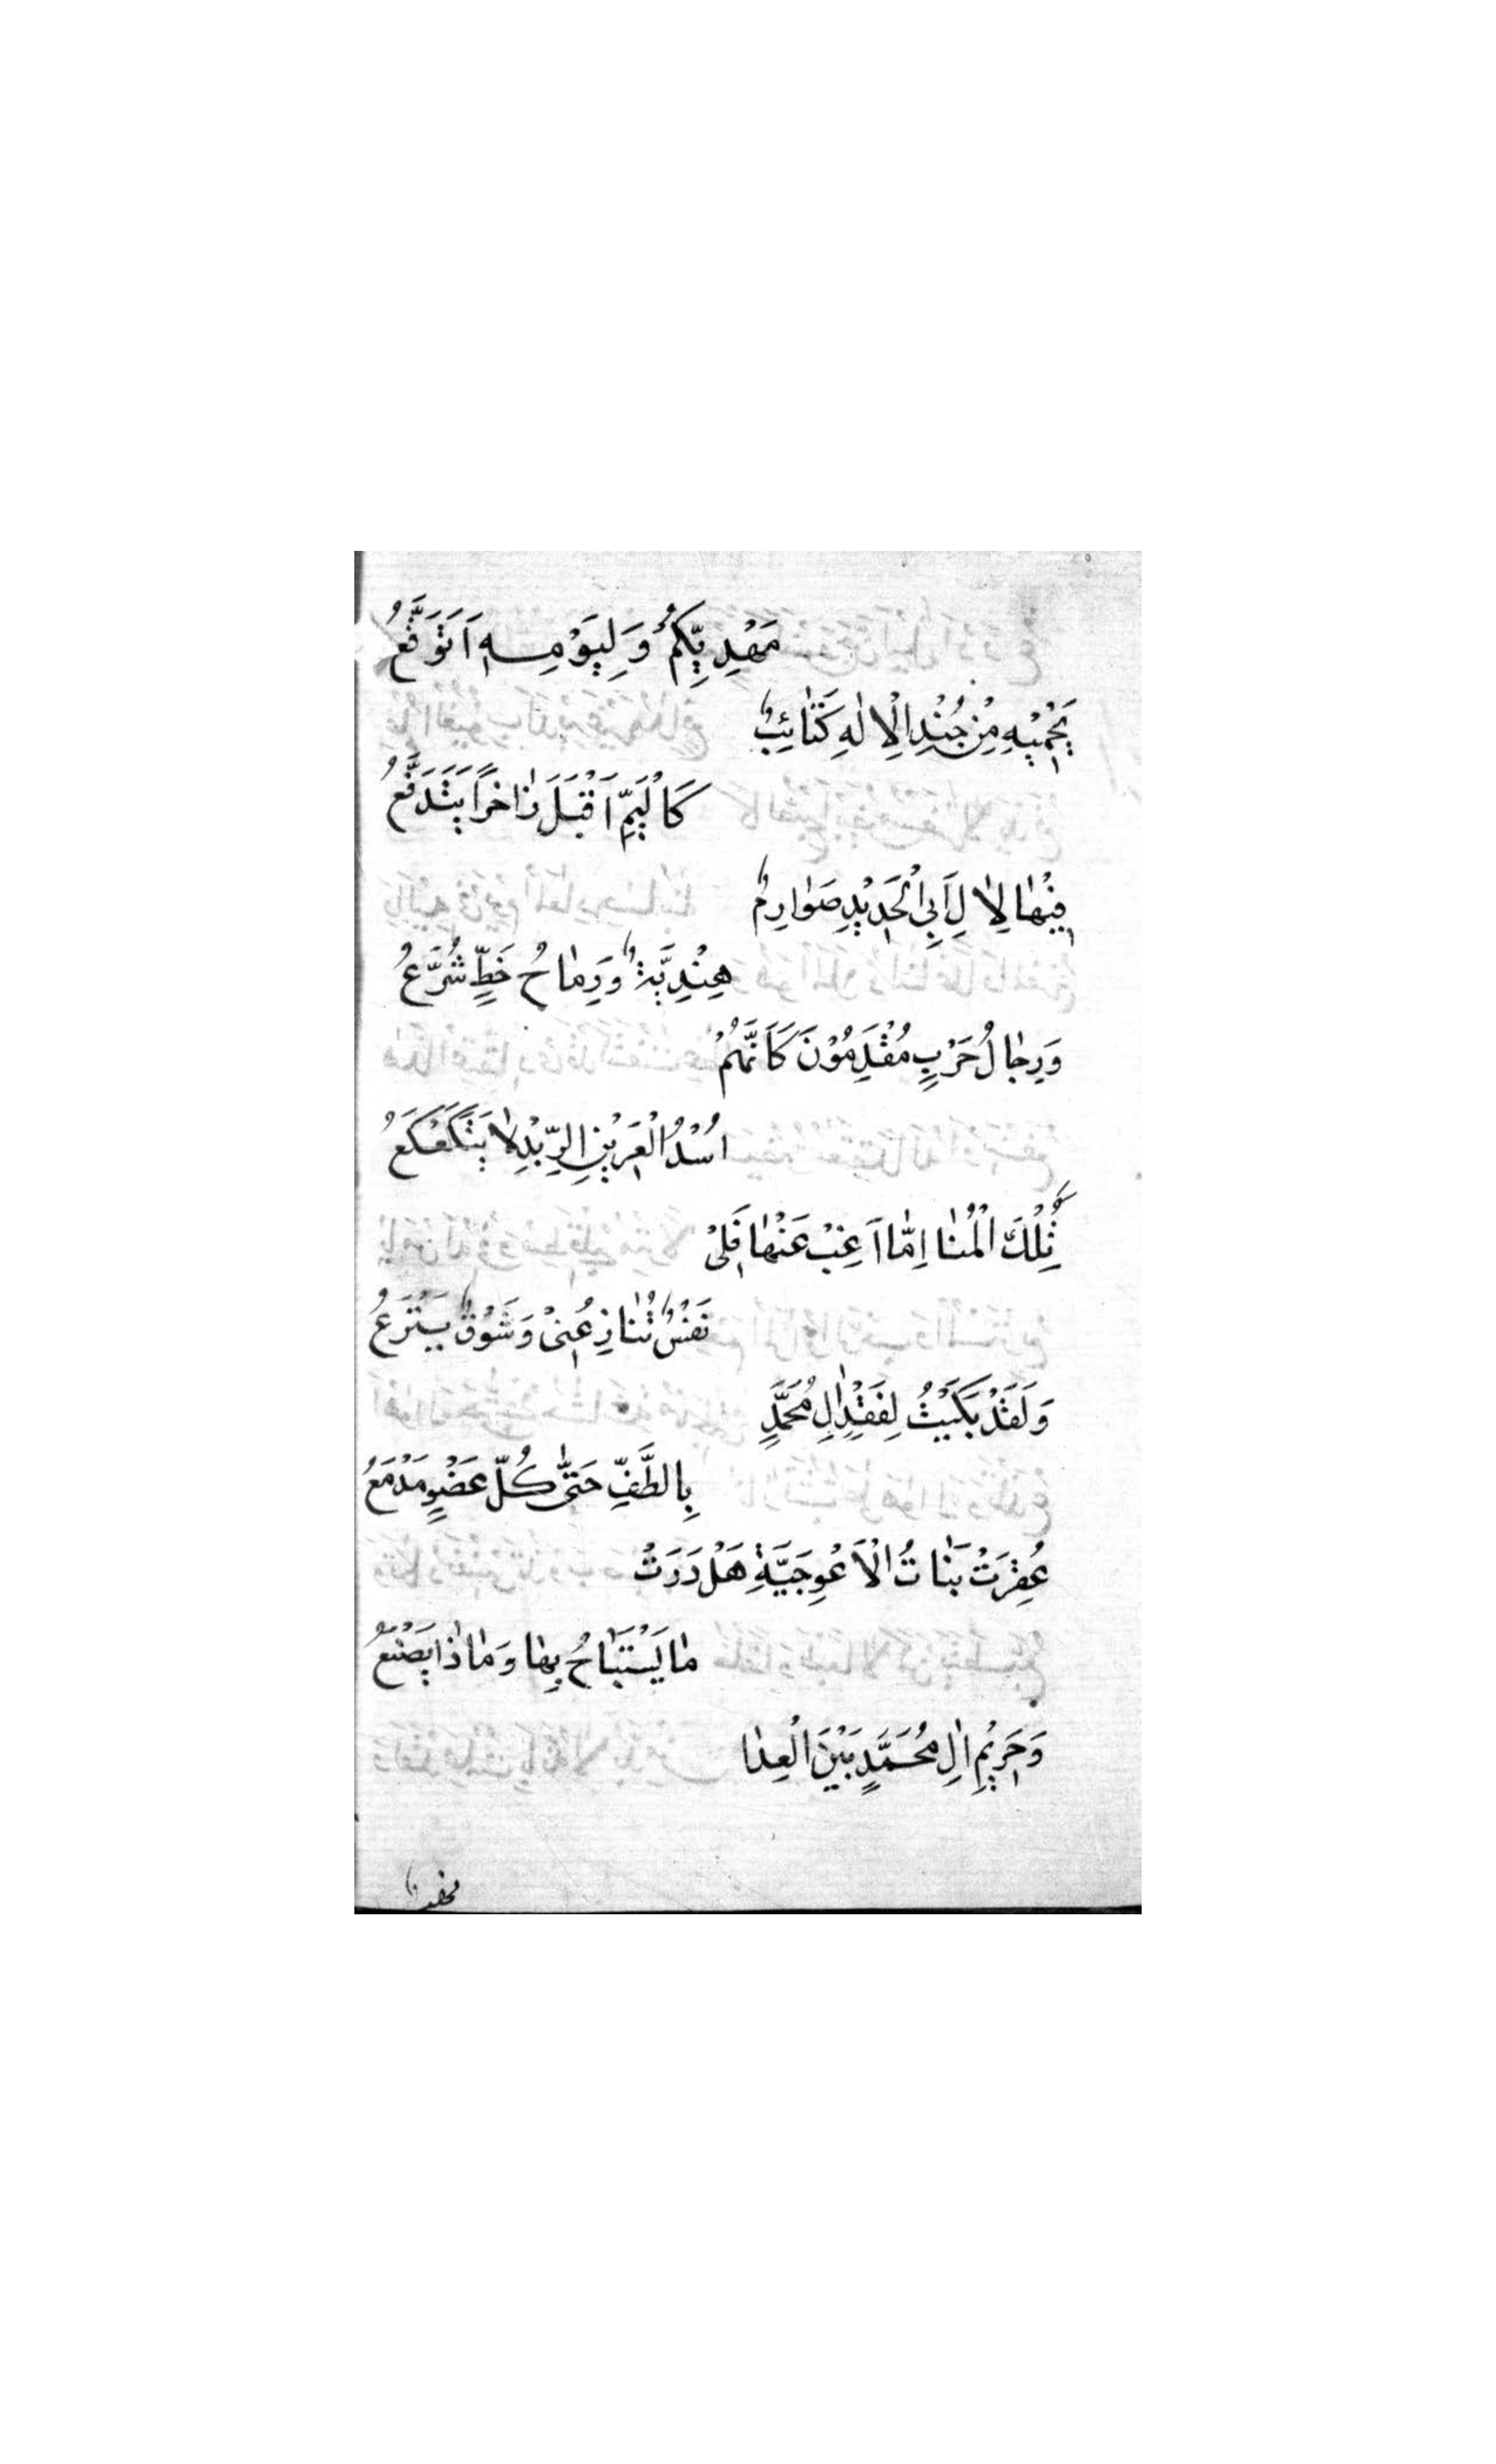 مَهْدِيِّكُمْ وَلِيَوْمِهِ اَتَوَقَّعُ
يَحْمِيْهِ مِنْ جُنْدِ الْاِلٰهِ كَتَائِبٌ
كَالْيَمِّ اَقْبَلَ زَاخِرًا يَتَدَفَّعُ
فِيْهَا لِاٰلِ اَبِي الْحَدِيْدِ صَوَارِمٌ
هِنْدِيَّةٌ وَرِمَاحُ خَطٍّ شُرَّعُ
وَرِجَالُ حَرْبٍ مُقْدِمُوْنَ كَاَنَّهُمْ
اُسْدُ الْعَرِيْنِ الرِّبْدِ لَا يَتَكَعْكَعُ
تِلْكَ الْمُنَا اِمَّا اَغِبْ عَنْهَا فَلِيْ
نَفْسٌ تُنَازِعُنِيْ وَشَوْقٌ يَنْزَعُ
وَلَقَدْ بَكَيْتُ لِفَقْدِ اٰلِ مُحَمَّدٍ
بِالطَّفِّ حَتّٰى كُلّ عَضْوٍ مَدْمَعُ
عُقِرَتْ بَنَاتُ الْاَعْوَجِيَّةِ هَلْ دَرَتْ
مَا يَسْتَبَاحُ بِهَا وَمَاذَا يَصْنَعُ
وَحَرِيْمِ اٰلِ مُحَمَّدٍ بَيْنَ الْعِدَا